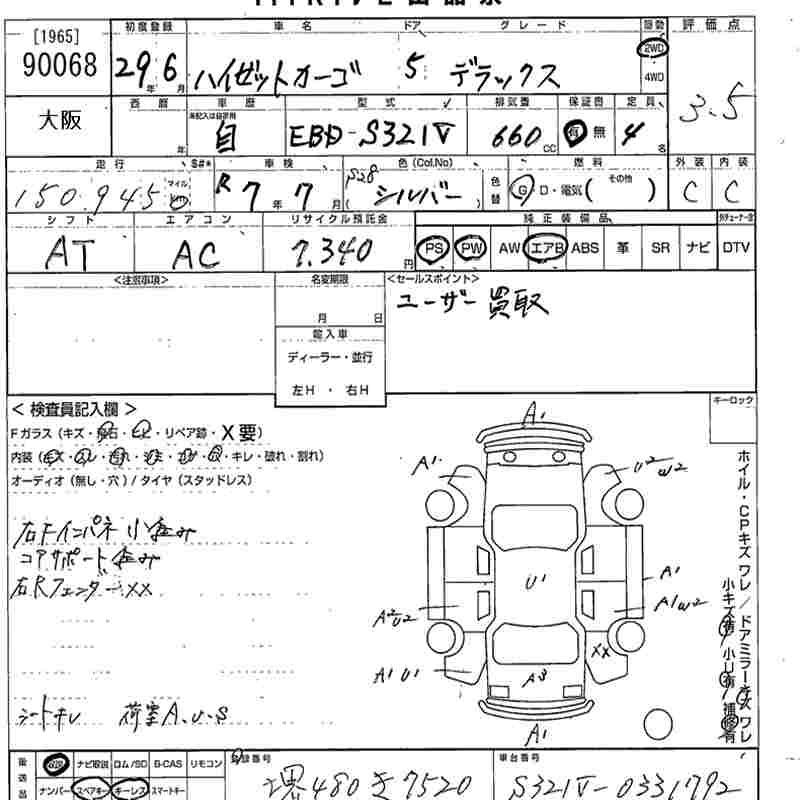 初度登録 車名 ドア グレード 駆動 評価点
[1965]
90068 29年6月 ハイゼットカーゴ 5 デラックス 2WD 4WD
3.5
大阪 西暦 年 車歴 未記入は自家用 自 型式 EBD-S321V 排気量 660cc 保証書 有 無 定員 4名
走行 S#* 車検 色(Col.No) 色替 燃料 外装 内装
150,945 マイル km R7年7月 S28 シルバー G・D・電気( その他 ) C C
シフト エアコン リサイクル預託金 純正装備品
AT AC 7,340円 PS PW AW エアB ABS 革 SR ナビ DTV
<注意事項> 名変期限 <セールスポイント>
月 日 ユーザー買取
輸入車
ディーラー・並行
左H ・ 右H
< 検査員記入欄 > キーロック
Fガラス(キズ・飛石・ヒビ・リペア跡・X要)
内装(キズ・スレ・汚れ・シミ・コゲ・穴・キレ・破れ・割れ)
オーディオ(無し・穴)/タイヤ(スタッドレス)
右Fインパネ小歪み
コアサポート歪み
右Rフェンダー××
シートキレ 荷室A.U.S
A1
A1 U2 W2
U1 A1
A2 U2 A1 W2
××
A1 U1 A3
A1
ホイル・CPキズワレ/ドアミラーキズワレ
小キズ有 小U有 補修有
後送品 取説 ナビ取説 ロム/SD B-CAS リモコン 登録番号 車台番号
ナンバー スペアキー キーレス スマートキー 堺480き7520 S321V-0331792